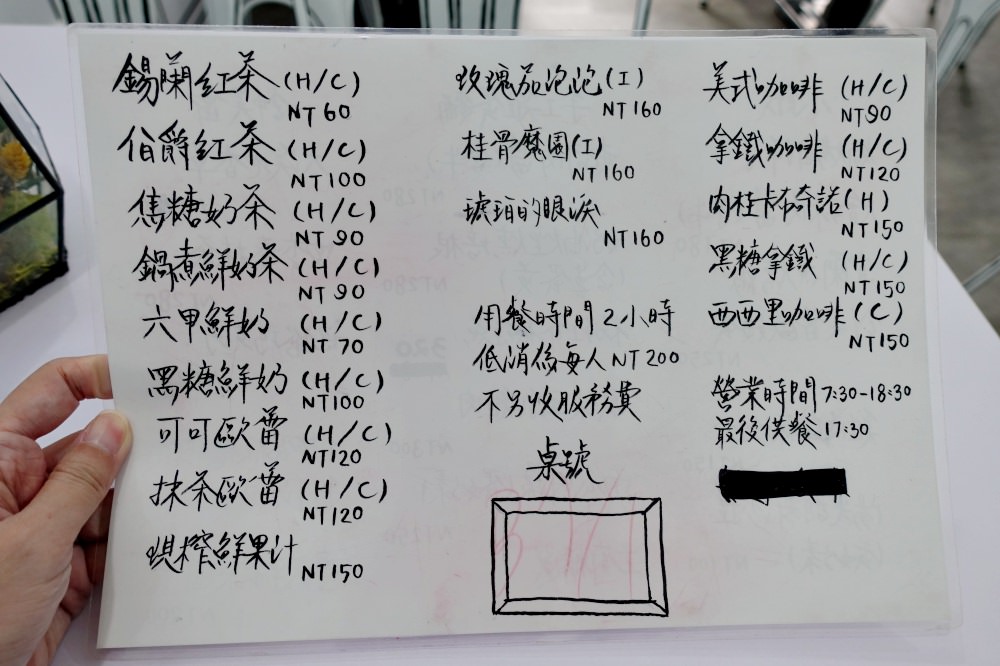 錫蘭紅茶 (H/C)
NT 60
伯爵紅茶 (H/C)
NT100
焦糖奶茶 (H/C)
NT 90
鍋煮鮮奶茶 (H/C)
NT 90
六甲鮮奶 (H/C)
NT 70
黑糖鮮奶 (H/C)
NT100
可可歐蕾 (H/C)
NT120
抹茶歐蕾 (H/C)
NT120
現榨鮮果汁 NT150
玫瑰茄泡泡 (I)
NT160
桂骨魔圖 (I)
NT160
琥珀的眼淚
NT160
用餐時間 2小時
低消係每人 NT 200
不另收服務費
桌號
美式咖啡 (H/C)
NT90
拿鐵咖啡 (H/C)
NT120
肉桂卡布奇諾 (H)
NT150
黑糖拿鐵 (H/C)
NT150
西西里咖啡 (C)
NT150
營業時間 7:30-18:30
最後供餐 17:30